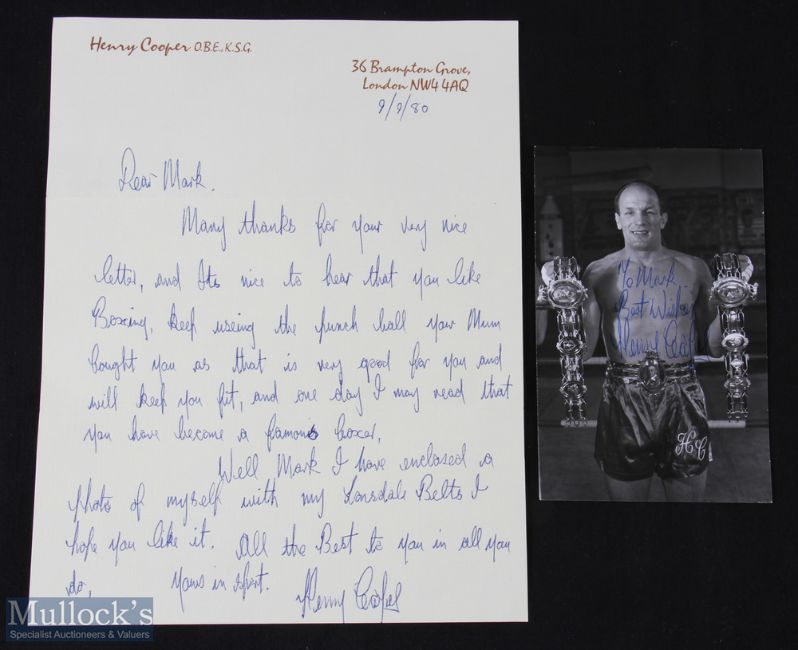 Henry Cooper O.B.E., K.S.G.
36 Brampton Grove,
London NW4 4AQ
9/9/80
Dear Mark.
Many thanks for your very nice
letter, and Its nice to hear that you like
Boxing, keep useing the punch ball your Mum
bought you as that is very good for you and
will keep you fit, and one day I may read that
you have become a famous boxer,
Well Mark I have enclosed a
photo of myself with my Lonsdale Belts I
hope you like it. All the Best to you in all you
do, Yours in sport.
Henry Cooper
To Mark
Best Wishes
Henry Cooper
HC
Mullock's
Specialist Auctioneers & Valuers